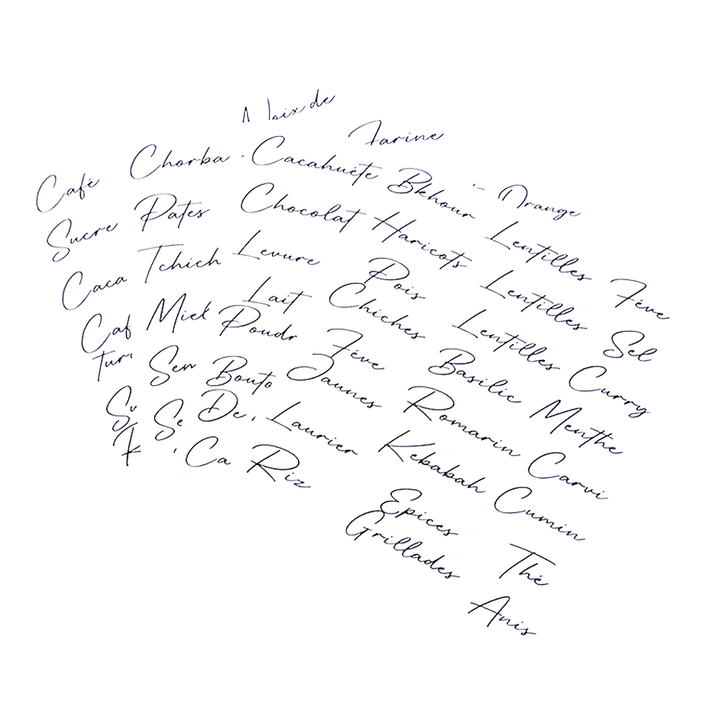 Farine
Café Chorba Cacahuète Bkhour Orange
Sucre Pates Chocolat Haricots Lentilles Fève
Caca Tchich Levure Pois Lentilles Sel
Caf Miel Lait Chiches Lentilles Curry
Turi Poudr Fève Basilic Menthe
Sem Bouto Jaunes Romarin Carvi
Su Se De Laurier Kebabah Cumin
Ca Riz Epices Thé
Grillades Anis